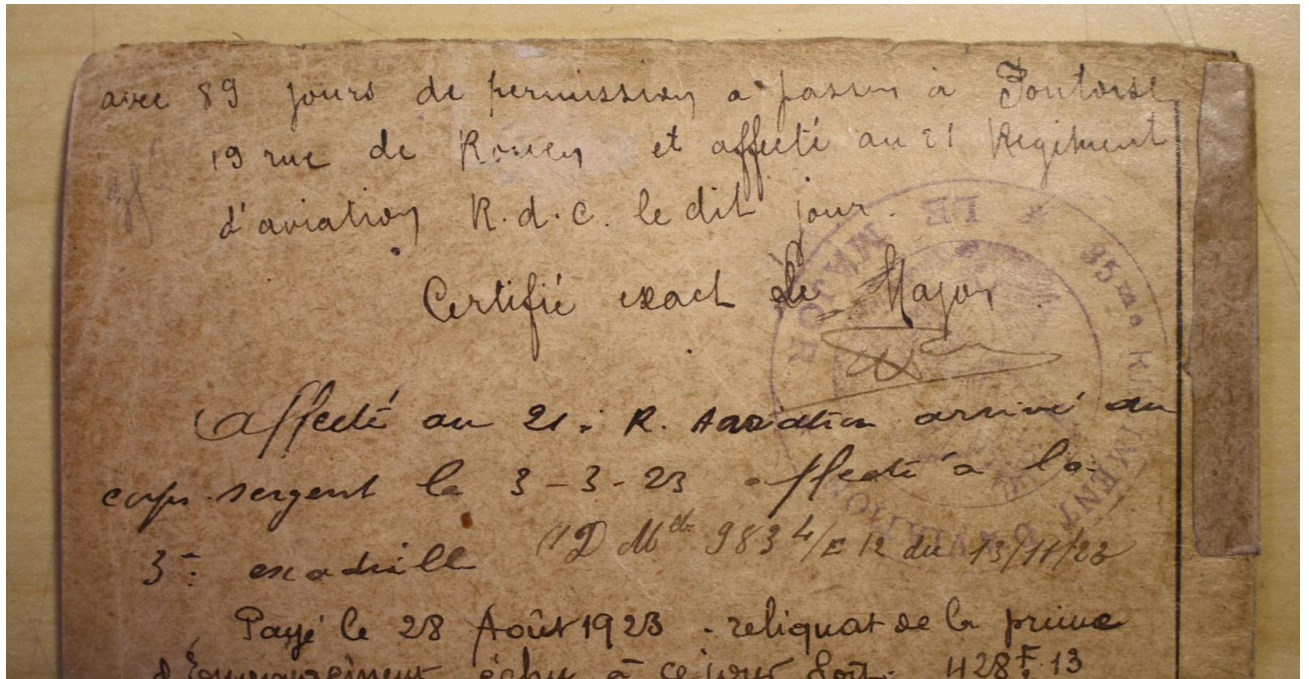 avec 89 jours de permission a passer à Pontoise
19 rue de Rouen et affecté au 21 Régiment
d'aviation R.d.C. le dit jour.
Certifié exact Le Major
LE MAJOR
35me RÉGIMENT D'AVIATION
affecté au 21e R. Aviation arrivé au
corps sergent le 3-3-23 affecté à la
3e escadrille (D Mlle 983 4/E 12 du 13/11/22
Payé le 28 Août 1923 - reliquat de la prime
d'Engagement échu à ce jour Soit: 428F.13